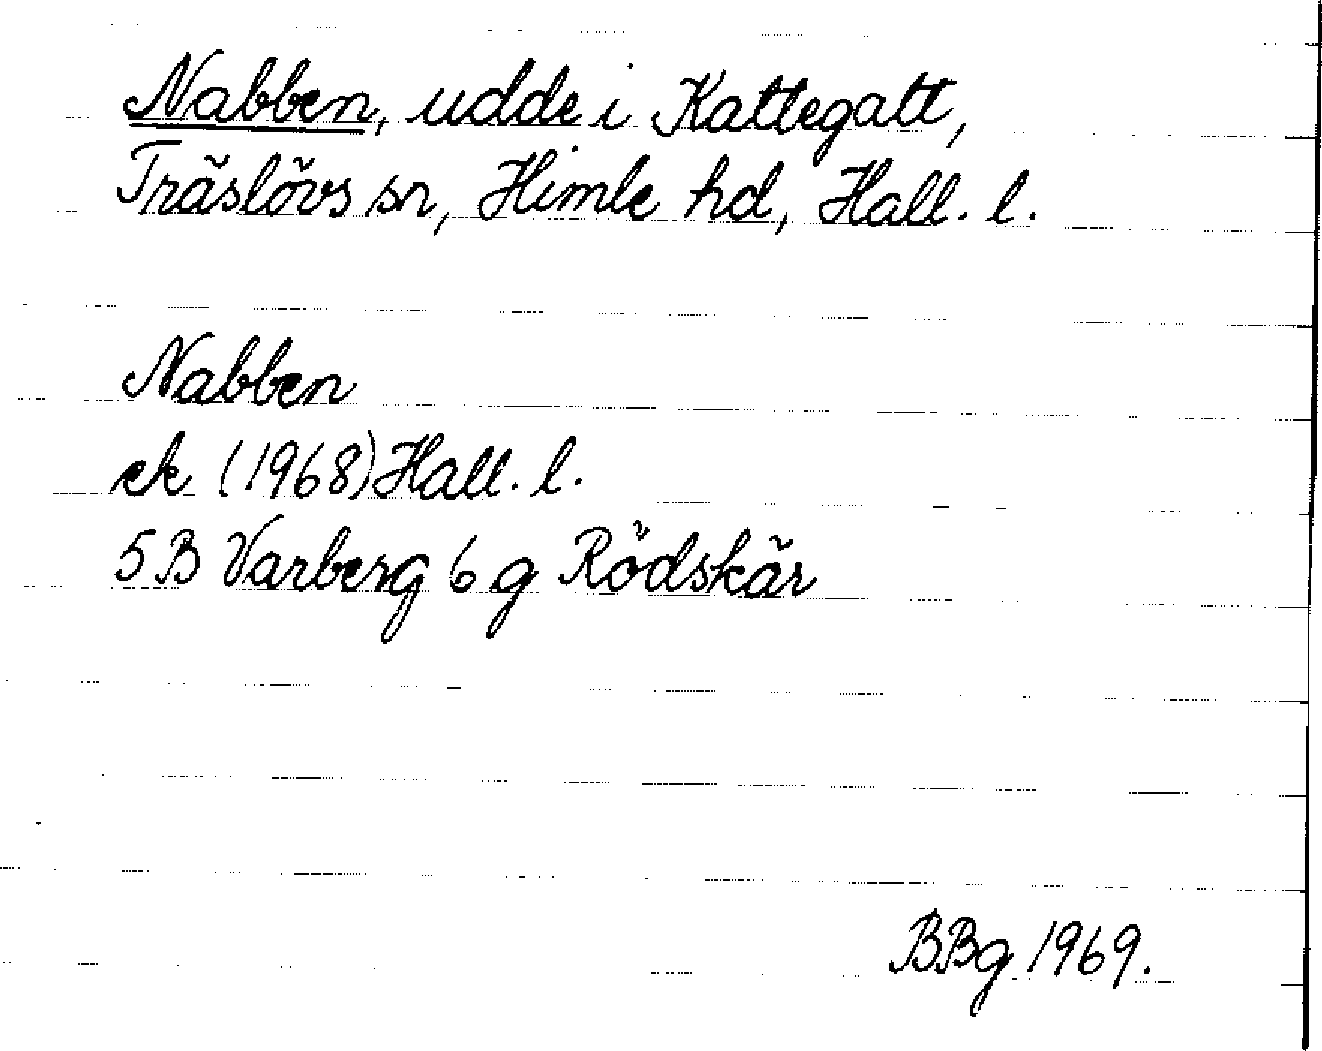 Nabben, udde i Kattegatt,
Träslövs sn, Himle hd, Hall. l.
Nabben
ek (1968) Hall. l.
5 B Varberg 6 g Rödskär
BBg 1969.